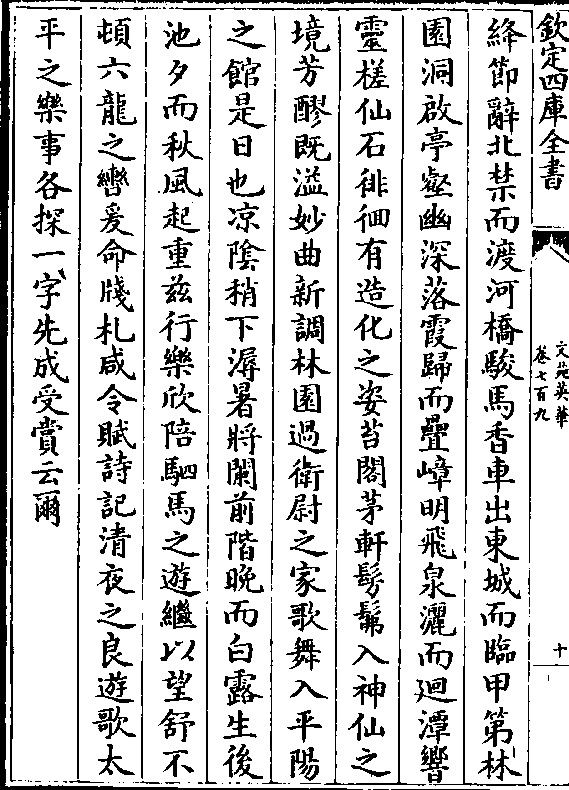 欽定四庫全書
文苑英華
卷七百九
十
絳節辭北禁而渡河橋駿馬香車出東城而臨甲第林
園洞啟亭壑幽深落霞歸而疊嶂明飛泉灑而迴潭響
靈槎仙石徘徊有造化之姿苔閣茅軒髣髴入神仙之
境芳醪既溢妙曲新調林園過衛尉之家歌舞入平陽
之館是日也凉陰稍下溽暑將闌前階晚而白露生後
池夕而秋風起重兹行樂欣陪駟馬之遊繼以望舒不
頓六龍之轡爰命牋札咸令賦詩記清夜之良遊歌太
平之樂事各探一字先成受賞云爾